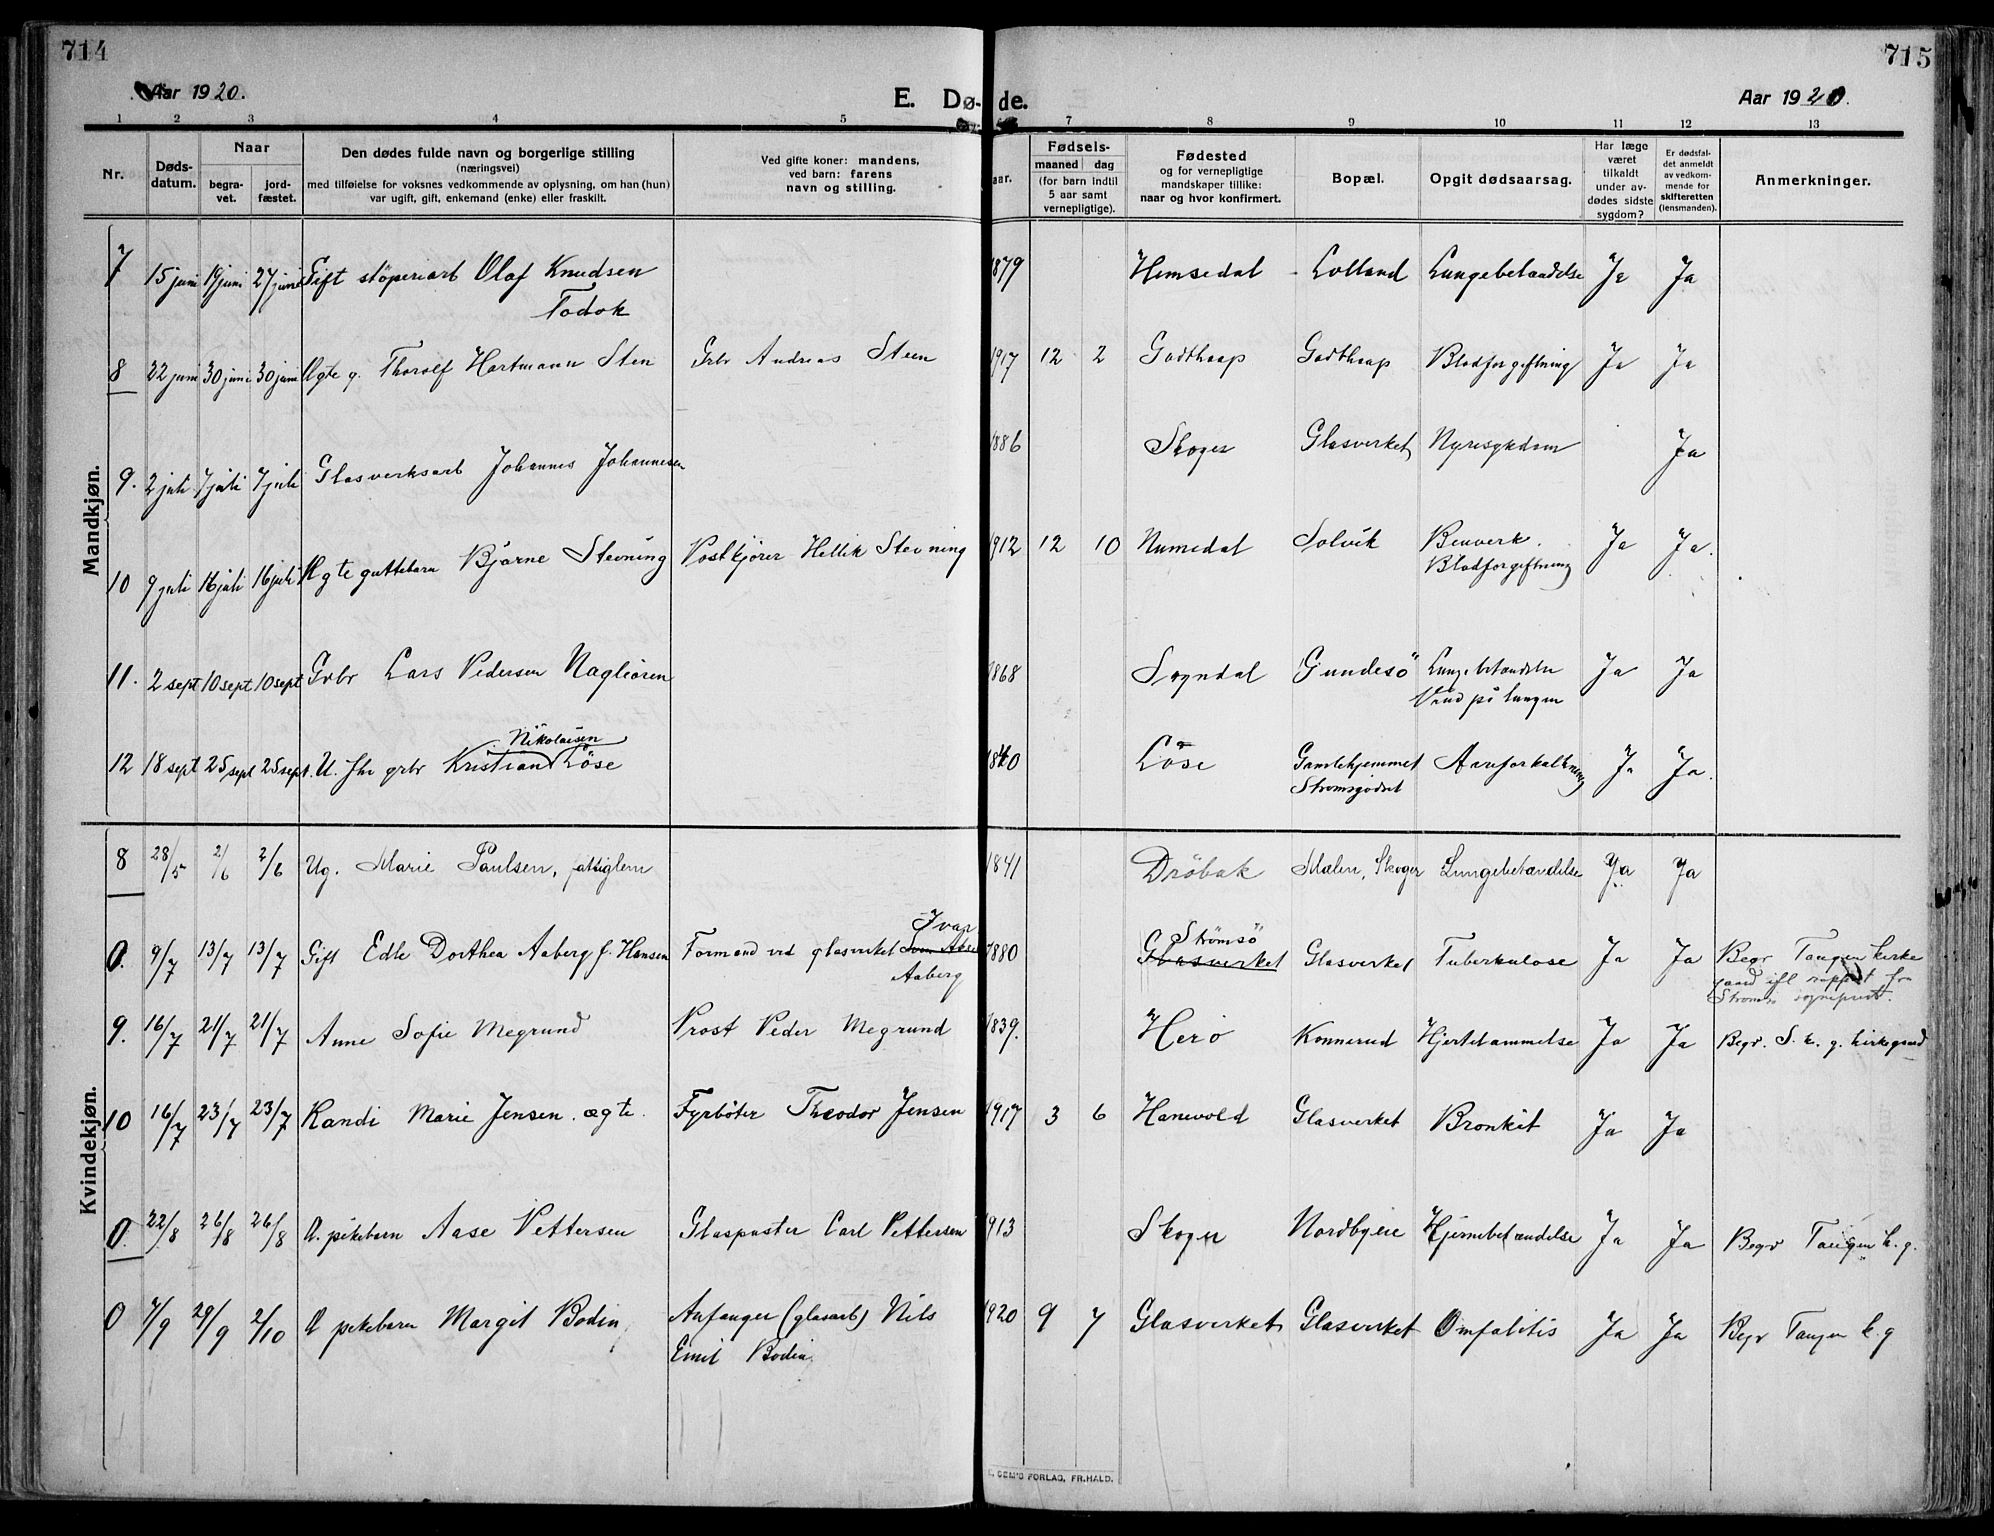 714
715
Aar 1920.
E. Dø- de.
Aar 1920.
1 2 3 4 5 7 8 9 10 11 12 13
Nr.
Døds-
datum.
Naar
begra-
vet.
jord-
fæstet.
Den dødes fulde navn og borgerlige stilling
(næringsvei)
med tilføielse for voksnes vedkommende av oplysning, om han (hun)
var ugift, gift, enkemand (enke) eller fraskilt.
Ved gifte koner: mandens,
ved barn: farens
navn og stilling.
aar.
Fødsels-
maaned dag
(for barn indtil
5 aar samt
vernepligtige).
Fødested
og for vernepligtige
mandskaper tillike:
naar og hvor konfirmert.
Bopæl.
Opgit dødsaarsag.
Har læge
været
tilkaldt
under av-
dødes sidste
sygdom?
Er dødsfal-
det anmeldt
av vedkom-
mende for
skifteretten
(lensmanden).
Anmerkninger.
Mandkjøn.
7 15 juni 19 juni 27 juni Gift stöperiarb Olaf Knudsen 1879 Hemsedal Lolland Lungebetændelse Ja Ja
Todok
8 22 juni 30 juni 30 juni Ægte g. Thorolf Hartmann Sten Grb Andreas Steen 1917 12 2 Godthaap Godthaap Blodforgiftning Ja Ja
9. 2 juli 7 juli 7 juli Glasverksarb Johannes Johannesen 1886 Skoger Glasverket Nyresykdom Ja
10 9 juli 16 juli 16 juli Ægte guttebarn Bjarne Stevning Postkjører Hellik Stevning 1912 12 10 Numedal Solvik Benverk. Ja Ja.
Blodforgiftning
11. 2 sept 10 sept 10 sept Grbr Lars Pedersen Nagløren 1868 Sogndal Gundesö Lungebetændelse Ja Ja
Vand på lungen
Nikolaisen
12 18 sept 25 sept 25 sept. U. fhv grbr Kristian Löse 1840 Löse Gamlehjemmet Aareforkalkning Ja Ja.
Strømsgodset
Kvindekjøn.
8 28/5 2/6 2/6 Ug. Marie Paulsen, fattiglem 1841 Dröbak Mælen, Skoger Lungebetændelse Ja Ja
Ivar
Strömsö
0. 9/7 13/7 13/7 Gift Edle Dorthea Aaberg f. Hansen Formand ved glasverket 1880 Glasverket Glasverket Tuberkulose Ja Ja Begr Tangen kirke
Aaberg
gaard ifl rapport fr
Strømsø sogneprest.
9. 16/7 21/7 21/7 Anne Sofie Megrund Prost Peder Megrund 1839. Herö Konnerud Hjertelammelse Ja Ja Begr. S. k. g. kirkegaard
10 16/7 23/7 23/7 Randi Marie Jensen. ægte. Fyrböter Theodor Jensen 1917 3 6 Hanevold Glasverket Bronkit Ja Ja
0. 22/8 26/8 26/8 Æ. pikebarn Aase Pettersen Glaspuster Carl Pettersen 1913 Skoger Nordbyeie Hjernebetændelse Ja Ja Begr Tangen k. g.
0 7/9 29/9 2/10 Æ pikebarn Margit Bodin, Anfanger (glasarb) Nils 1920 9 7 Glasverket Glasverket Omfalitis Ja Ja Begr Tangen k. g
Emil Bodin.
SEM'S FORLAG, FR.HALD.